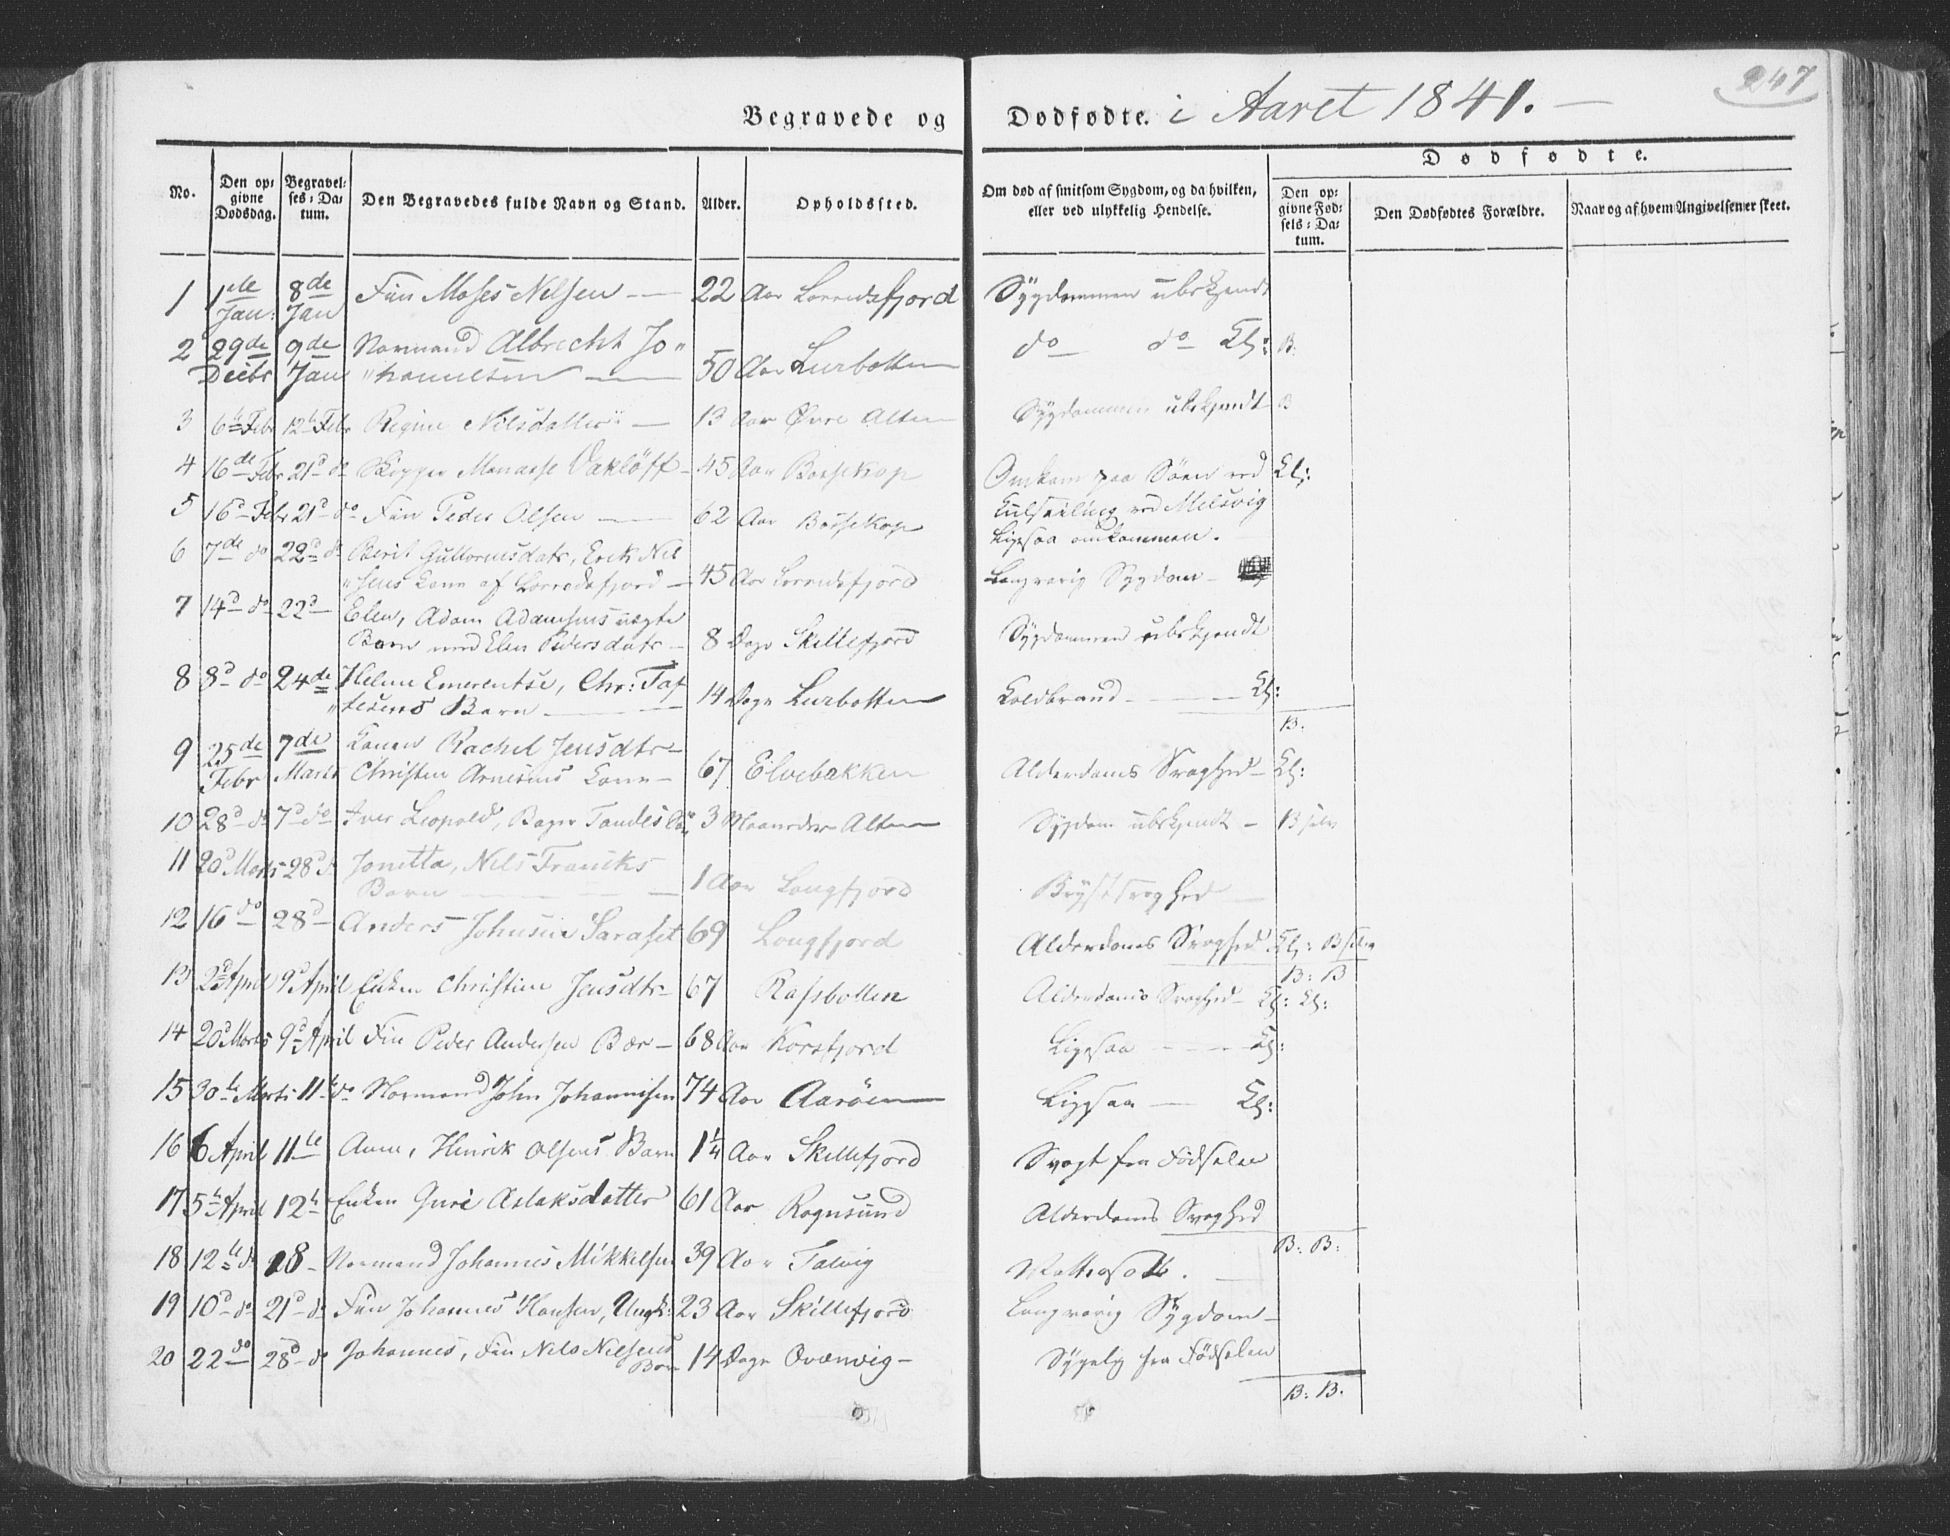 247
Begravede og Dødfødte. i Aaret 1841. —
Dødfødte.
No.
Den op-
givne
Dødsdag.
Begravel-
ses-Da-
tum.
Den Begravedes fulde Navn og Stand.
Alder.
Opholdssted.
Om død af smitsom Sygdom, og da hvilken,
eller ved ulykkelig Hendelse.
Den op-
givne Fød-
sels-Da-
tum.
Den Dødfødtes Forældre.
Naar og af hvem Angivelsen er skeet.
1 1te Jan: 8de Jan Fin Moses Nilsen — 22 Aar Sygdommen ubekjendt
2 29de Decbr 9de Jan Normand Albrecht Jo-
"hannesen — 50 Aar Lerbotten do do Kl: B.
3 6te Febr 12te Febr Regine Nilsdatter — 13 Aar Øvre Alten Sygdommen ubekjendt B
4 16de Febr 21d do Skipper Manasse Vakløff — 45 Aar Bossekop Omkom paa Søen ved Kl:
5 16d Febr 21d do Fin Peder Olsen — 62 Aar Bossekop Kulseiling ved Melsvig
Ligesaa omkommen.
6 7de do 22d do Berit Guttormsdatr, Erik Nil
"sens Kone af — 45 Aar Langvarig Sygdom —
7 14d do 22d Elen, Adam Adamsens uægte
Barn med Elen Pedersdatr — 8 Dage Skillefjord Sygdommen ubekjendt
8 8d do 24de Helene Emerentse, Chr: Taf
"tesens Barn — 14 Dage Lerbotten Koldbrand — Kl:
B.
9 25de Febr 7de Marts Konen Rachel Jensdtr —
Christen Arnesens Kone — 67 Elvebakken Alderdoms Svaghed — Kl:
10 28d do 7d do Iver Leopold, Bager 3 Maaneder Alten Sygdom ubekjendt — B selv
11 20d Marts 28d do Jonetta, Nils Franiks
Barn — 1 Aar Langfjord Brystsvaghed —
12 16 do 28d Anders Johnsen Sarasit 69 Langfjord Alderdoms Svaghed Kl: B selv
B: B
13 2d April 9d April Enken Christine Jensdtr — 67 Rafsbotten Alderdoms Svaghed — Kl: Kl:
14 20d Marts 9d April Fin Peder Andersen Bær — 68 Aar Korsfjord Ligesaa — Kl:
15 30te Marts 11te do Normand John Johannesen 74 Aar Aarøen Ligesaa — Kl:
16 6 April 11te Anne, Henrik Olsens Barn 1¼ Aar Skillefjord Svagt fra Fødselen
17 5te April 12te Enken Guri Aslaksdatter 61 Aar Rognsund Alderdoms Svaghed
B: B:
18 12te do 18 — Normand Johannes Mikkelsen 39 Aar Talvig
19 10d do 21d do Fin Johannes Hansen, Ungk: 23 Aar Skillefjord Langvarig Sygdom —
20 22 do 28d do Johannes, Fin Nils Nilsens
Barn 14 Dage Qvænvig — Sygelig fra Fødselen
B: B.